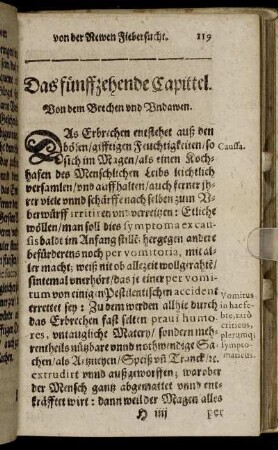 von der Newen Fiebersucht. 119
Das fünffzehende Capittel.
Von dem Brechen vnd Vndawen.
DAs Erbrechen enstehet auß den
bösen/gifftigen Feuchtigkeiten/so
sich im Magen/als einen Koch-
hafen des Menschlichen Leibs leichtlich
versamlen/vnd auffhalten/auch ferner jh-
rer viele vnnd schärffe nach selben zum V-
berwürff irritiren vnd verretzen: Etliche
wöllen/man soll dies symptoma ex cau-
sis baldt im Anfang stillē: hergegen andere
befürderens noch per vomitoria, mit al-
ler macht: weiß nit ob allezeit wollgerahtē/
sintemal vnerhört/das je einer per vomi-
tum von einigen Pestilentischen accident
errettet sey: Zu dem werden allhie durch
das Erbrechen fast selten praui humo-
res, vntaugliche Matery/ sondern meh-
rentheils nützbare vnnd nothwendige Sa-
chen/als Artzneyen/ Speiß vñ Tranck/ꝛc.
extrudirt vnnd außgeworffen; warober
der Mensch gantz abgemattet vnnd ent-
kräfftet wirt: dann weil der Magen alles
H iiij per
Caussa.
Vomitus
in hac fe-
bre, rarò
criticus,
plerumq;
sympto-
maticus.